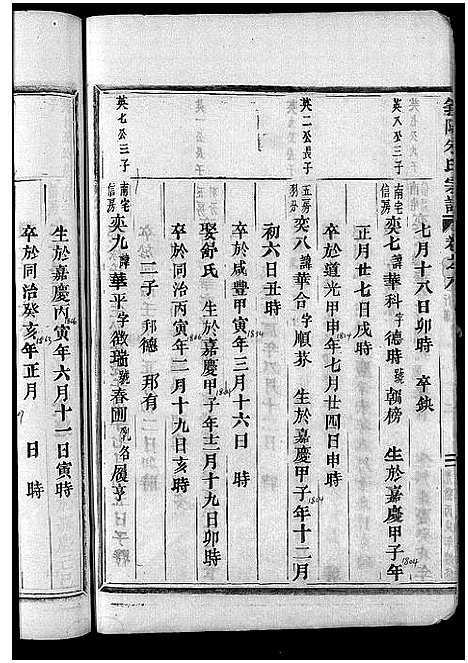 七月十八日卯時　卒缺
英八公三子　南宅信房　奕七　諱華科　字德時　號翰榜　生於嘉慶甲子年 1804
正月廿七日戌時
卒於道光甲申年七月廿四日申時
英二公長子　五房羽分　奕八　諱華合　字順芬　生於嘉慶甲子年十二月 1804
初六日丑時
卒於咸豐甲寅年三月十六日　時 1854
娶舒氏　生於嘉慶甲子年十二月十九日卯時 1804
卒於同治丙寅年二月十九日亥時 1866
二子　邦德　那有
英七公三子　南宅信房　奕九　諱華平　字徵瑞　號春圃　乳名履亨
生於嘉慶丙寅年六月十一日寅時 1806
卒於同治癸亥年正月　日　時 1863